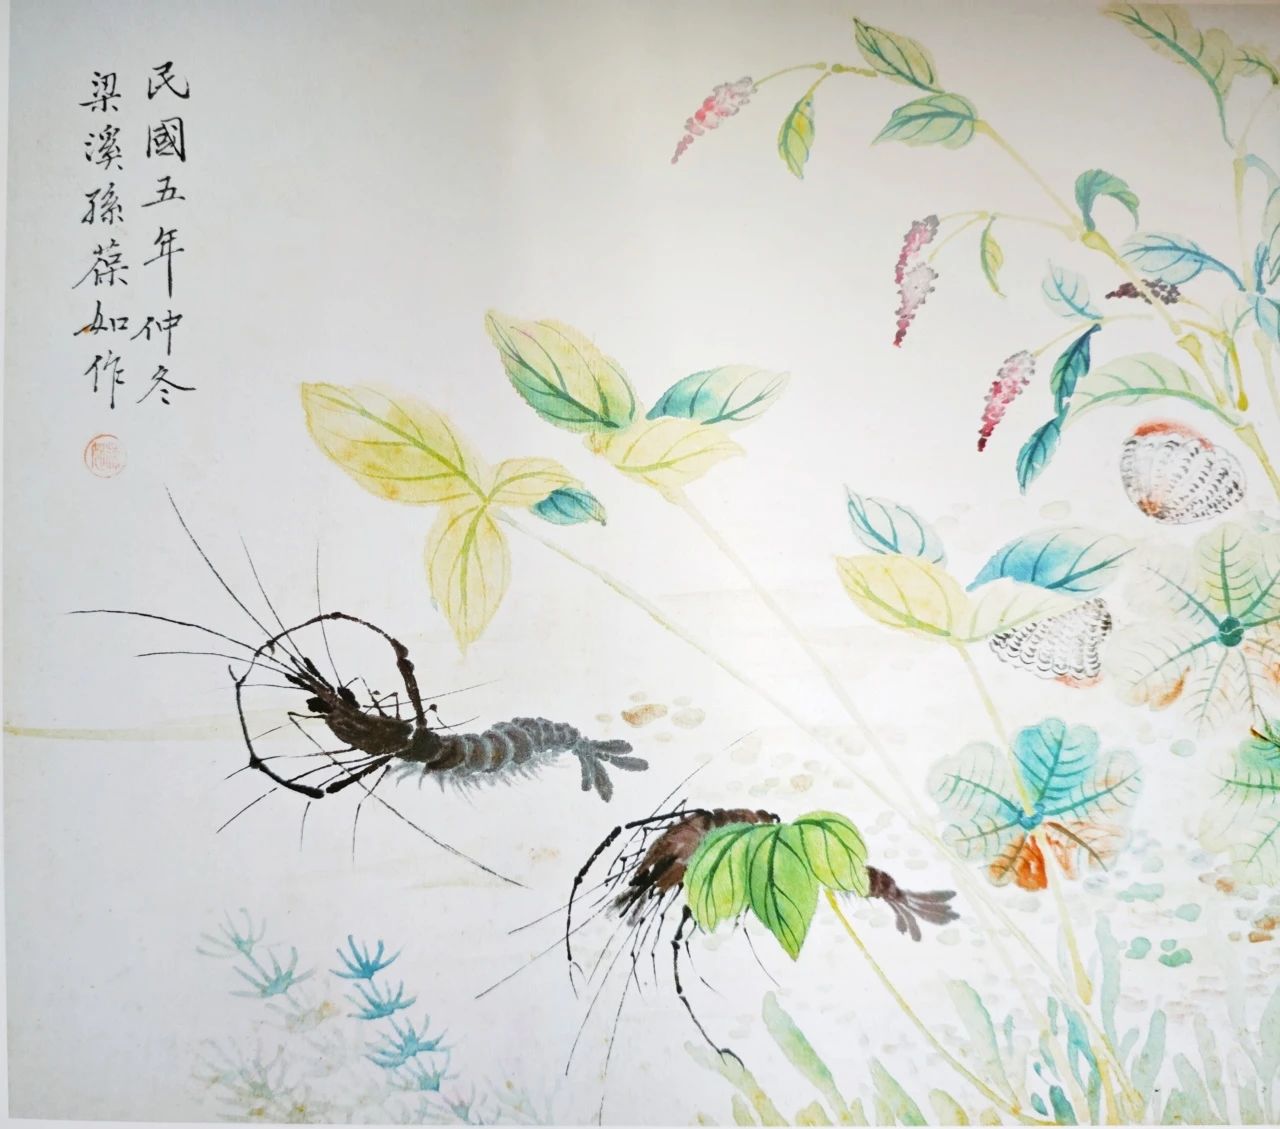 民國五年仲冬
梁溪孫葆如作